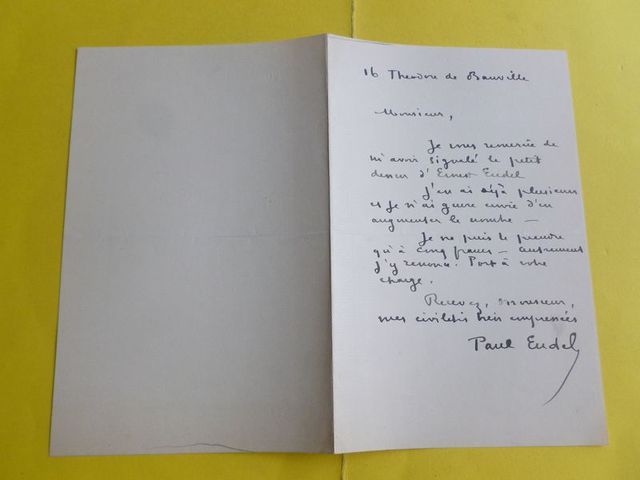 16 Theodore de Banville
Monsieur,
Je vous remercie de
m'avoir signalé le petit
dessin d'Ernest Eudel
J'en ai déjà plusieurs
et je n'ai guere envie d'en
augmenter le nombre —
Je ne puis le prendre
qu'à cinq francs — autrement
j'y renonce. Port à votre
charge.
Recevez, Monsieur,
mes civilités très empressées
Paul Eudel